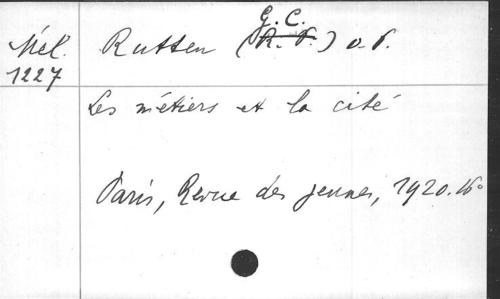 G. C.
Mél. Rutten (R. P.) O. P.
1227
Les métiers et la cité
Paris, Revue des jeunes, 1920. 16°